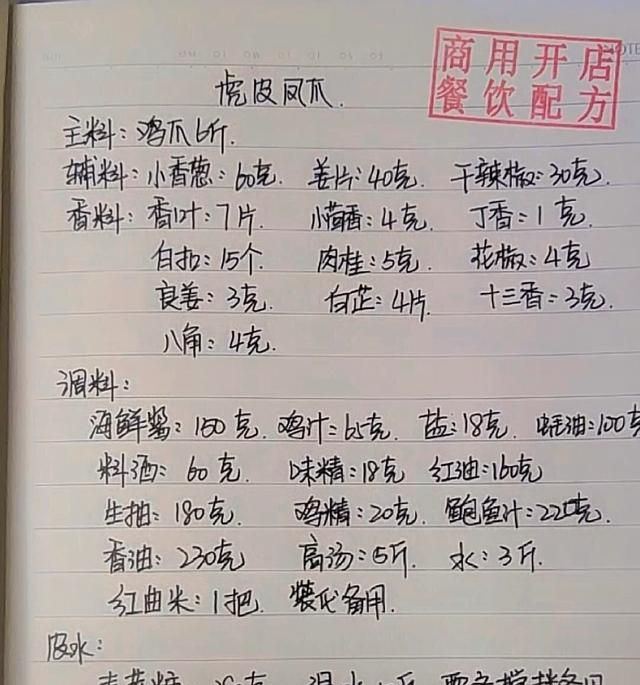 商用开店
餐饮配方
虎皮凤爪.
主料：鸡爪6斤.
辅料：小香葱：60克. 姜片：40克. 干辣椒：30克.
香料：香叶：7片. 小茴香：4克. 丁香：1克.
白扣：15个. 肉桂：5克. 花椒：4克
良姜：3克. 白芷：4片. 十三香：3克.
八角：4克.
调料：
海鲜酱：150克. 鸡汁：65克. 盐：18克. 蚝油：100克
料酒：60克. 味精：18克 红油：160克
生抽：180克. 鸡精：20克. 鲍鱼汁：220克.
香油：230克 高汤：5斤. 水：3斤.
红曲米：1把. 装代备用.